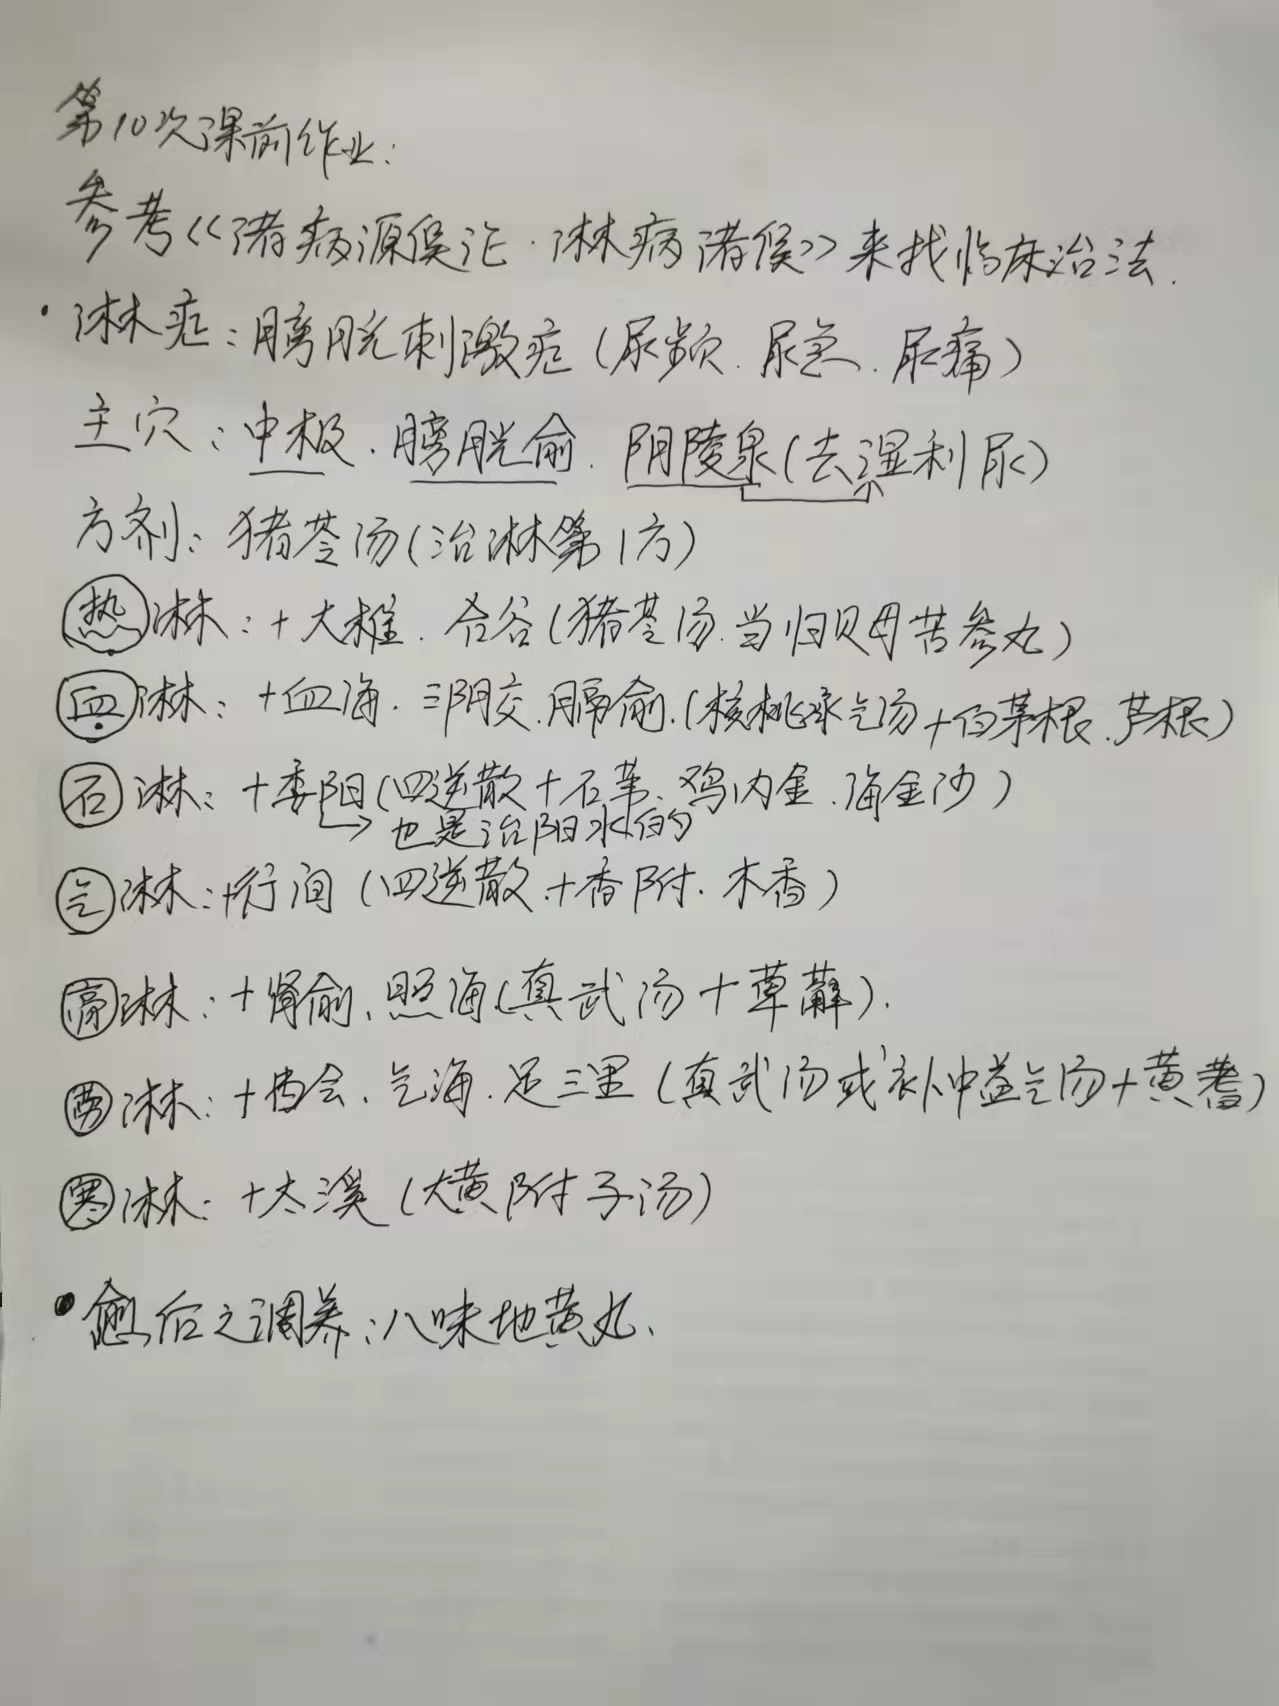 第10次课前作业:
参考《诸病源侯论·淋病诸候》来找临床治法.
·淋症:膀胱刺激症(尿频.尿急.尿痛)
主穴:中极.膀胱俞.阴陵泉(去湿利尿)
方剂:猪苓汤(治淋第1方)
热淋:+大椎.合谷(猪苓汤.当归贝母苦参丸)
血淋:+血海.三阴交.膈俞.(核桃承气汤+白茅根.芦根)
石淋:+委阳(四逆散+石苇.鸡内金.海金沙)
也是治阳水的
气淋:+行间(四逆散.+香附.木香)
膏淋:+肾俞.照海(真武汤+萆薢).
劳淋:+百会.气海.足三里(真武汤或补中益气汤+黄耆)
寒淋:+太溪(大黄附子汤)
·愈后之调养:八味地黄丸.